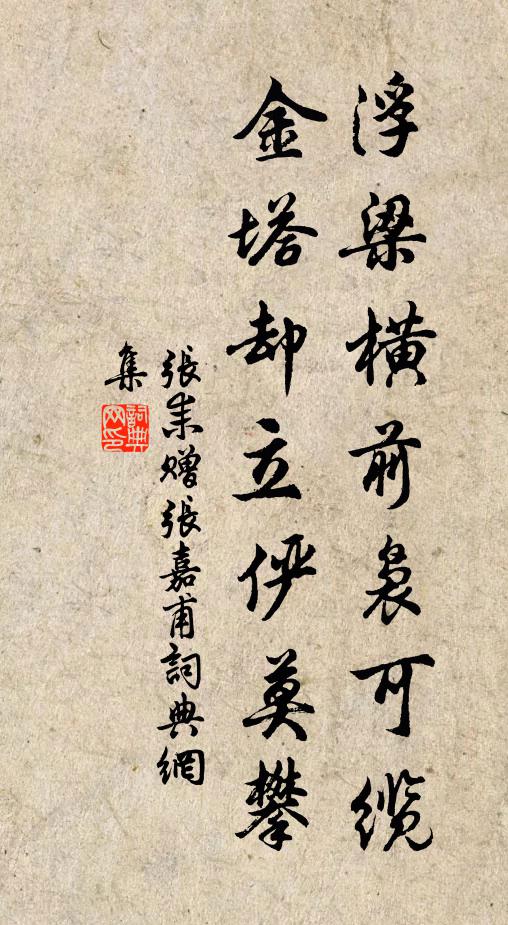 浮梁横前袅可缆
金塔却立俨莫攀
張耒贈張嘉甫詞典網
集
詞典网印